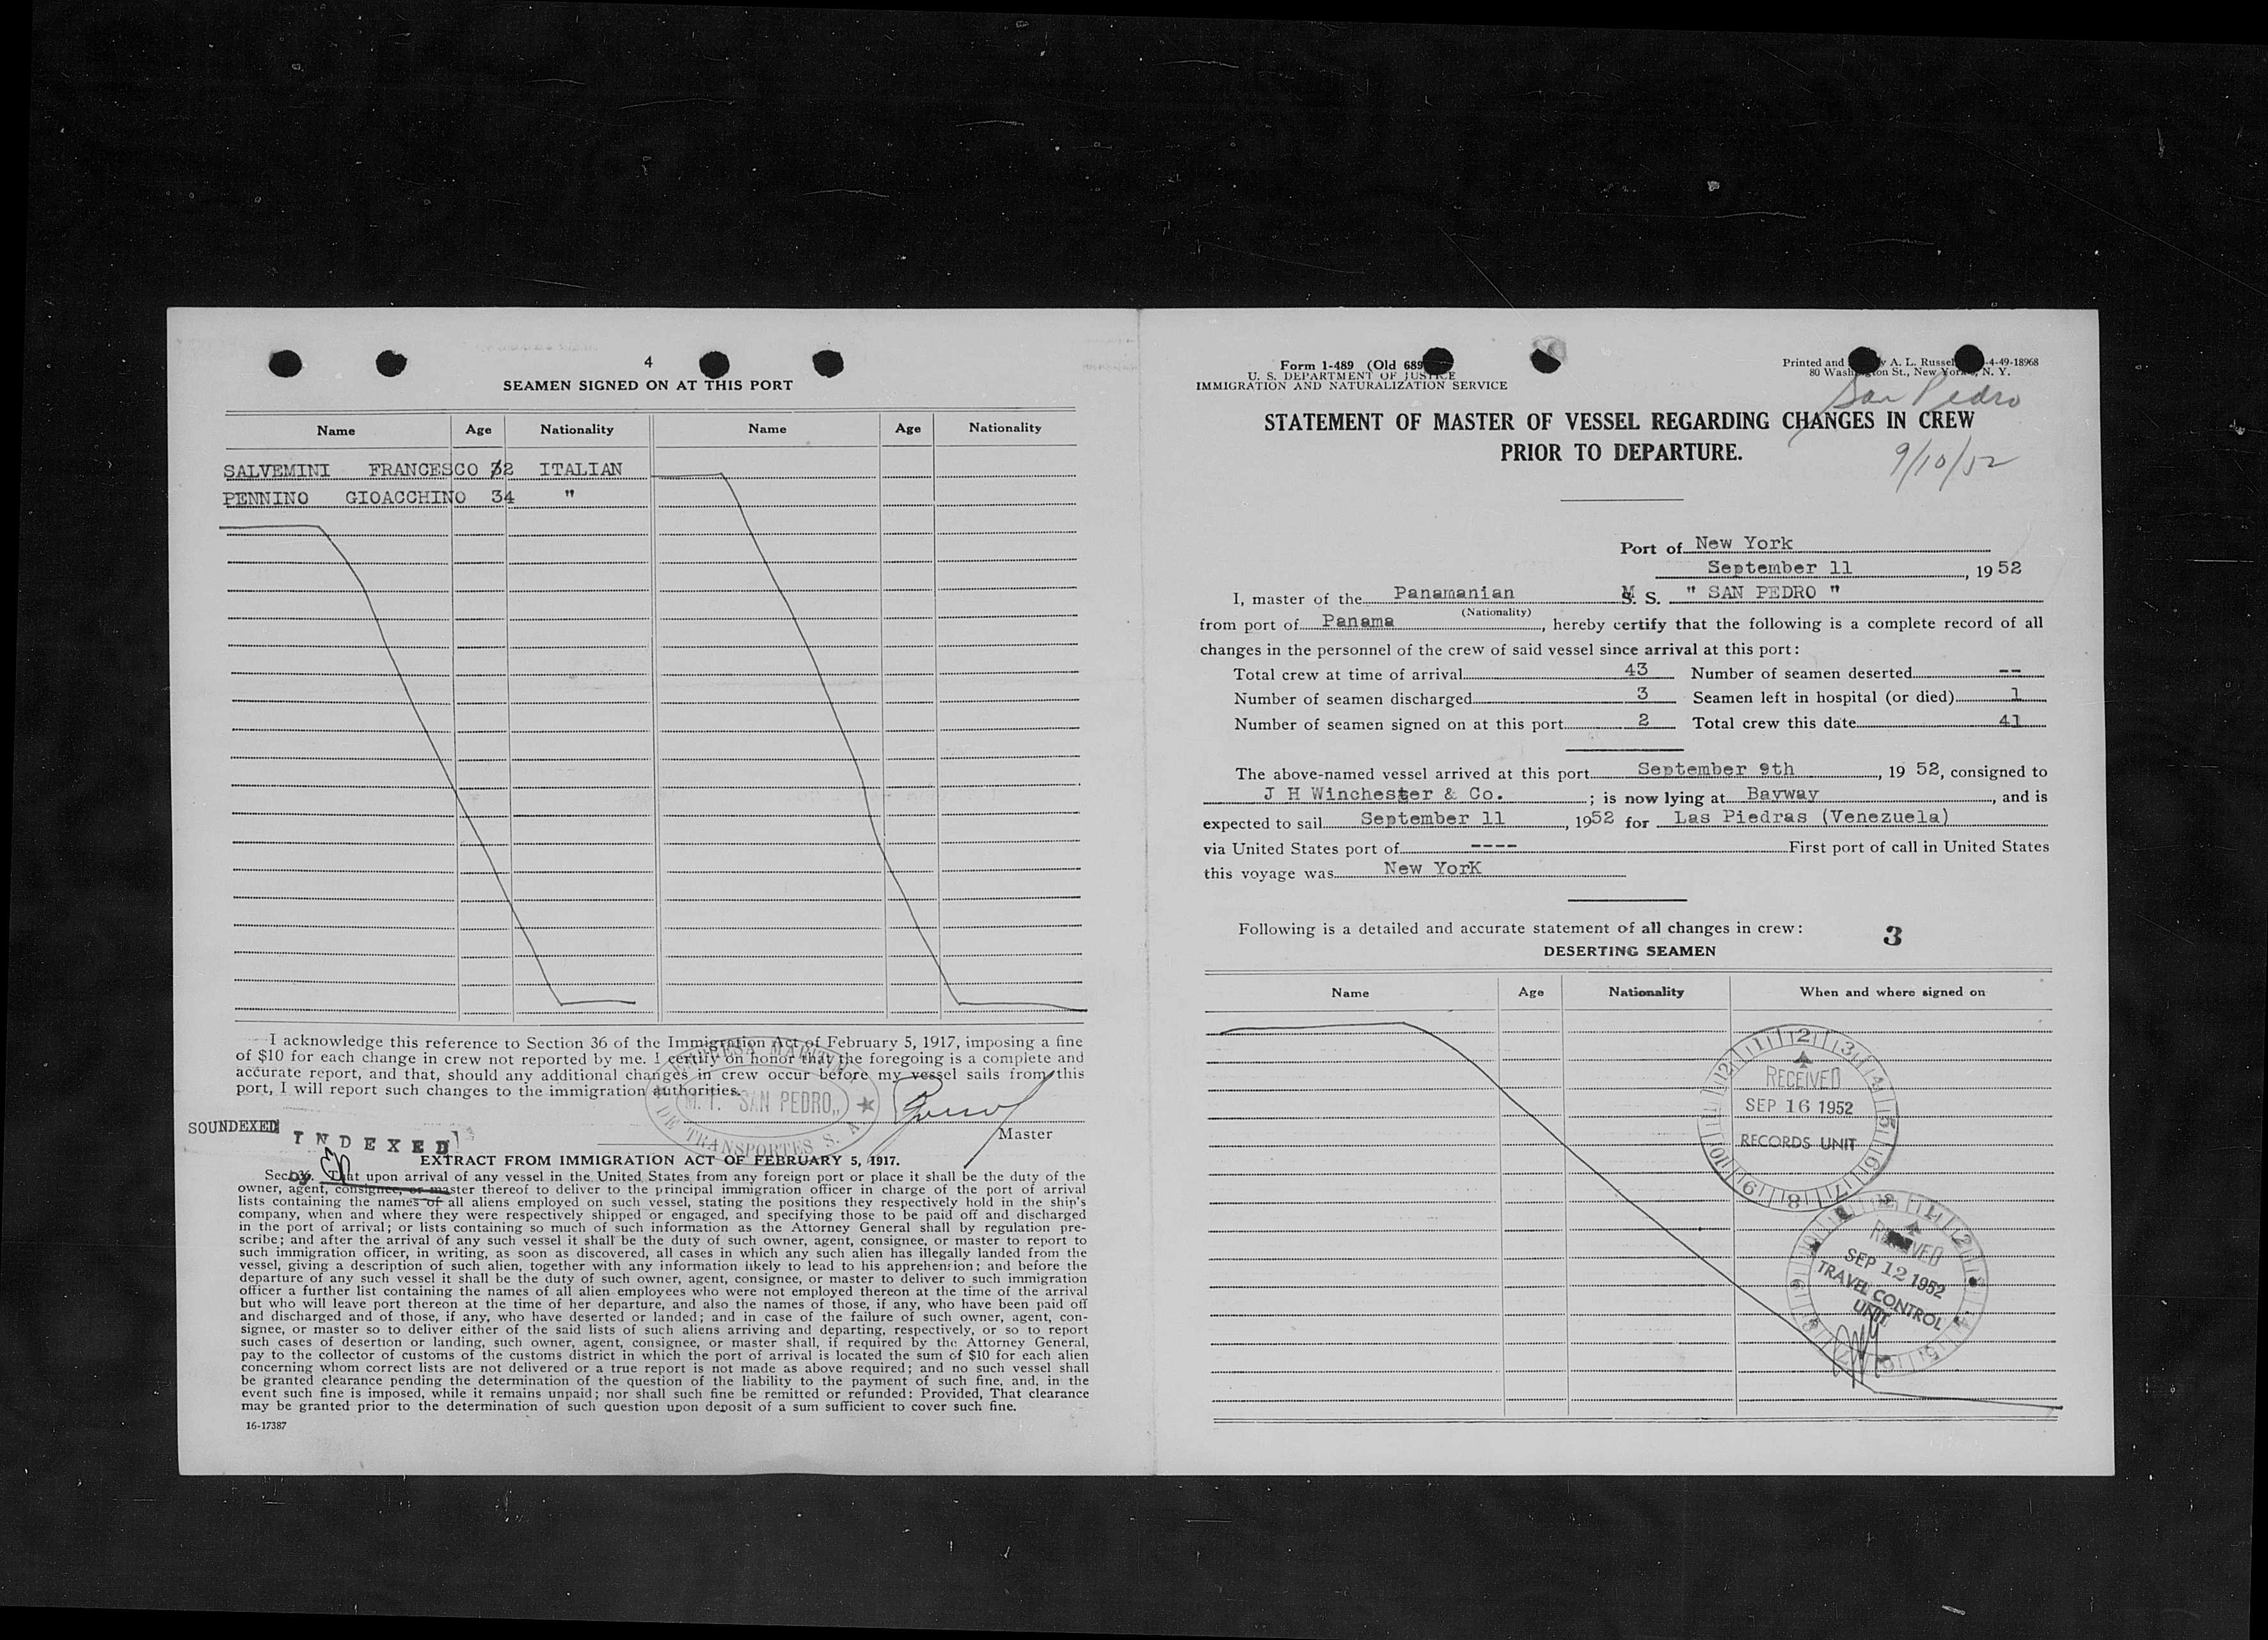 4
SEAMEN SIGNED ON AT THIS PORT
Name Age Nationality Name Age Nationality
SALVEMINI FRANCESCO 32 ITALIAN
PENNINO GIOACCHINO 34 "
I acknowledge this reference to Section 36 of the Immigration Act of February 5, 1917, imposing a fine
of $10 for each change in crew not reported by me. I certify on honor that the foregoing is a complete and
accurate report, and that, should any additional changes in crew occur before my vessel sails from this
port, I will report such changes to the immigration authorities.
M. T. "SAN PEDRO"
DE TRANSPORTES S. A.
Master
SOUNDEXED
INDEXED
by
EXTRACT FROM IMMIGRATION ACT OF FEBRUARY 5, 1917.
Sec. 36. That upon arrival of any vessel in the United States from any foreign port or place it shall be the duty of the
owner, agent, consignee, or master thereof to deliver to the principal immigration officer in charge of the port of arrival
lists containing the names of all aliens employed on such vessel, stating the positions they respectively hold in the ship's
company, when and where they were respectively shipped or engaged, and specifying those to be paid off and discharged
in the port of arrival; or lists containing so much of such information as the Attorney General shall by regulation pre-
scribe; and after the arrival of any such vessel it shall be the duty of such owner, agent, consignee, or master to report to
such immigration officer, in writing, as soon as discovered, all cases in which any such alien has illegally landed from the
vessel, giving a description of such alien, together with any information likely to lead to his apprehension; and before the
departure of any such vessel it shall be the duty of such owner, agent, consignee, or master to deliver to such immigration
officer a further list containing the names of all alien employees who were not employed thereon at the time of the arrival
but who will leave port thereon at the time of her departure, and also the names of those, if any, who have been paid off
and discharged and of those, if any, who have deserted or landed; and in case of the failure of such owner, agent, con-
signee, or master so to deliver either of the said lists of such aliens arriving and departing, respectively, or so to report
such cases of desertion or landing, such owner, agent, consignee, or master shall, if required by the Attorney General,
pay to the collector of customs of the customs district in which the port of arrival is located the sum of $10 for each alien
concerning whom correct lists are not delivered or a true report is not made as above required; and no such vessel shall
be granted clearance pending the determination of the question of the liability to the payment of such fine, and, in the
event such fine is imposed, while it remains unpaid; nor shall such fine be remitted or refunded: Provided, That clearance
may be granted prior to the determination of such question upon deposit of a sum sufficient to cover such fine.
16-17387
Form 1-489 (Old 689
U. S. DEPARTMENT OF JUSTICE
IMMIGRATION AND NATURALIZATION SERVICE
Printed and A. L. Russel -4-49-18968
80 Washington St., New York, N. Y.
San Pedro
STATEMENT OF MASTER OF VESSEL REGARDING CHANGES IN CREW
PRIOR TO DEPARTURE.
9/10/52
Port of New York
September 11, 1952
I, master of the Panamanian M. S. " SAN PEDRO "
(Nationality)
from port of Panama, hereby certify that the following is a complete record of all
changes in the personnel of the crew of said vessel since arrival at this port:
Total crew at time of arrival 43 Number of seamen deserted --
Number of seamen discharged 3 Seamen left in hospital (or died) 1
Number of seamen signed on at this port 2 Total crew this date 41
The above-named vessel arrived at this port September 9th, 19 52, consigned to
J H Winchester & Co.; is now lying at Bayway, and is
expected to sail September 11, 1952 for Las Piedras (Venezuela)
via United States port of ---- First port of call in United States
this voyage was New YorK
Following is a detailed and accurate statement of all changes in crew:
3
DESERTING SEAMEN
Name Age Nationality When and where signed on
RECEIVED
SEP 16 1952
RECORDS UNIT
RECEIVED
SEP 12 1952
TRAVEL CONTROL
UNIT